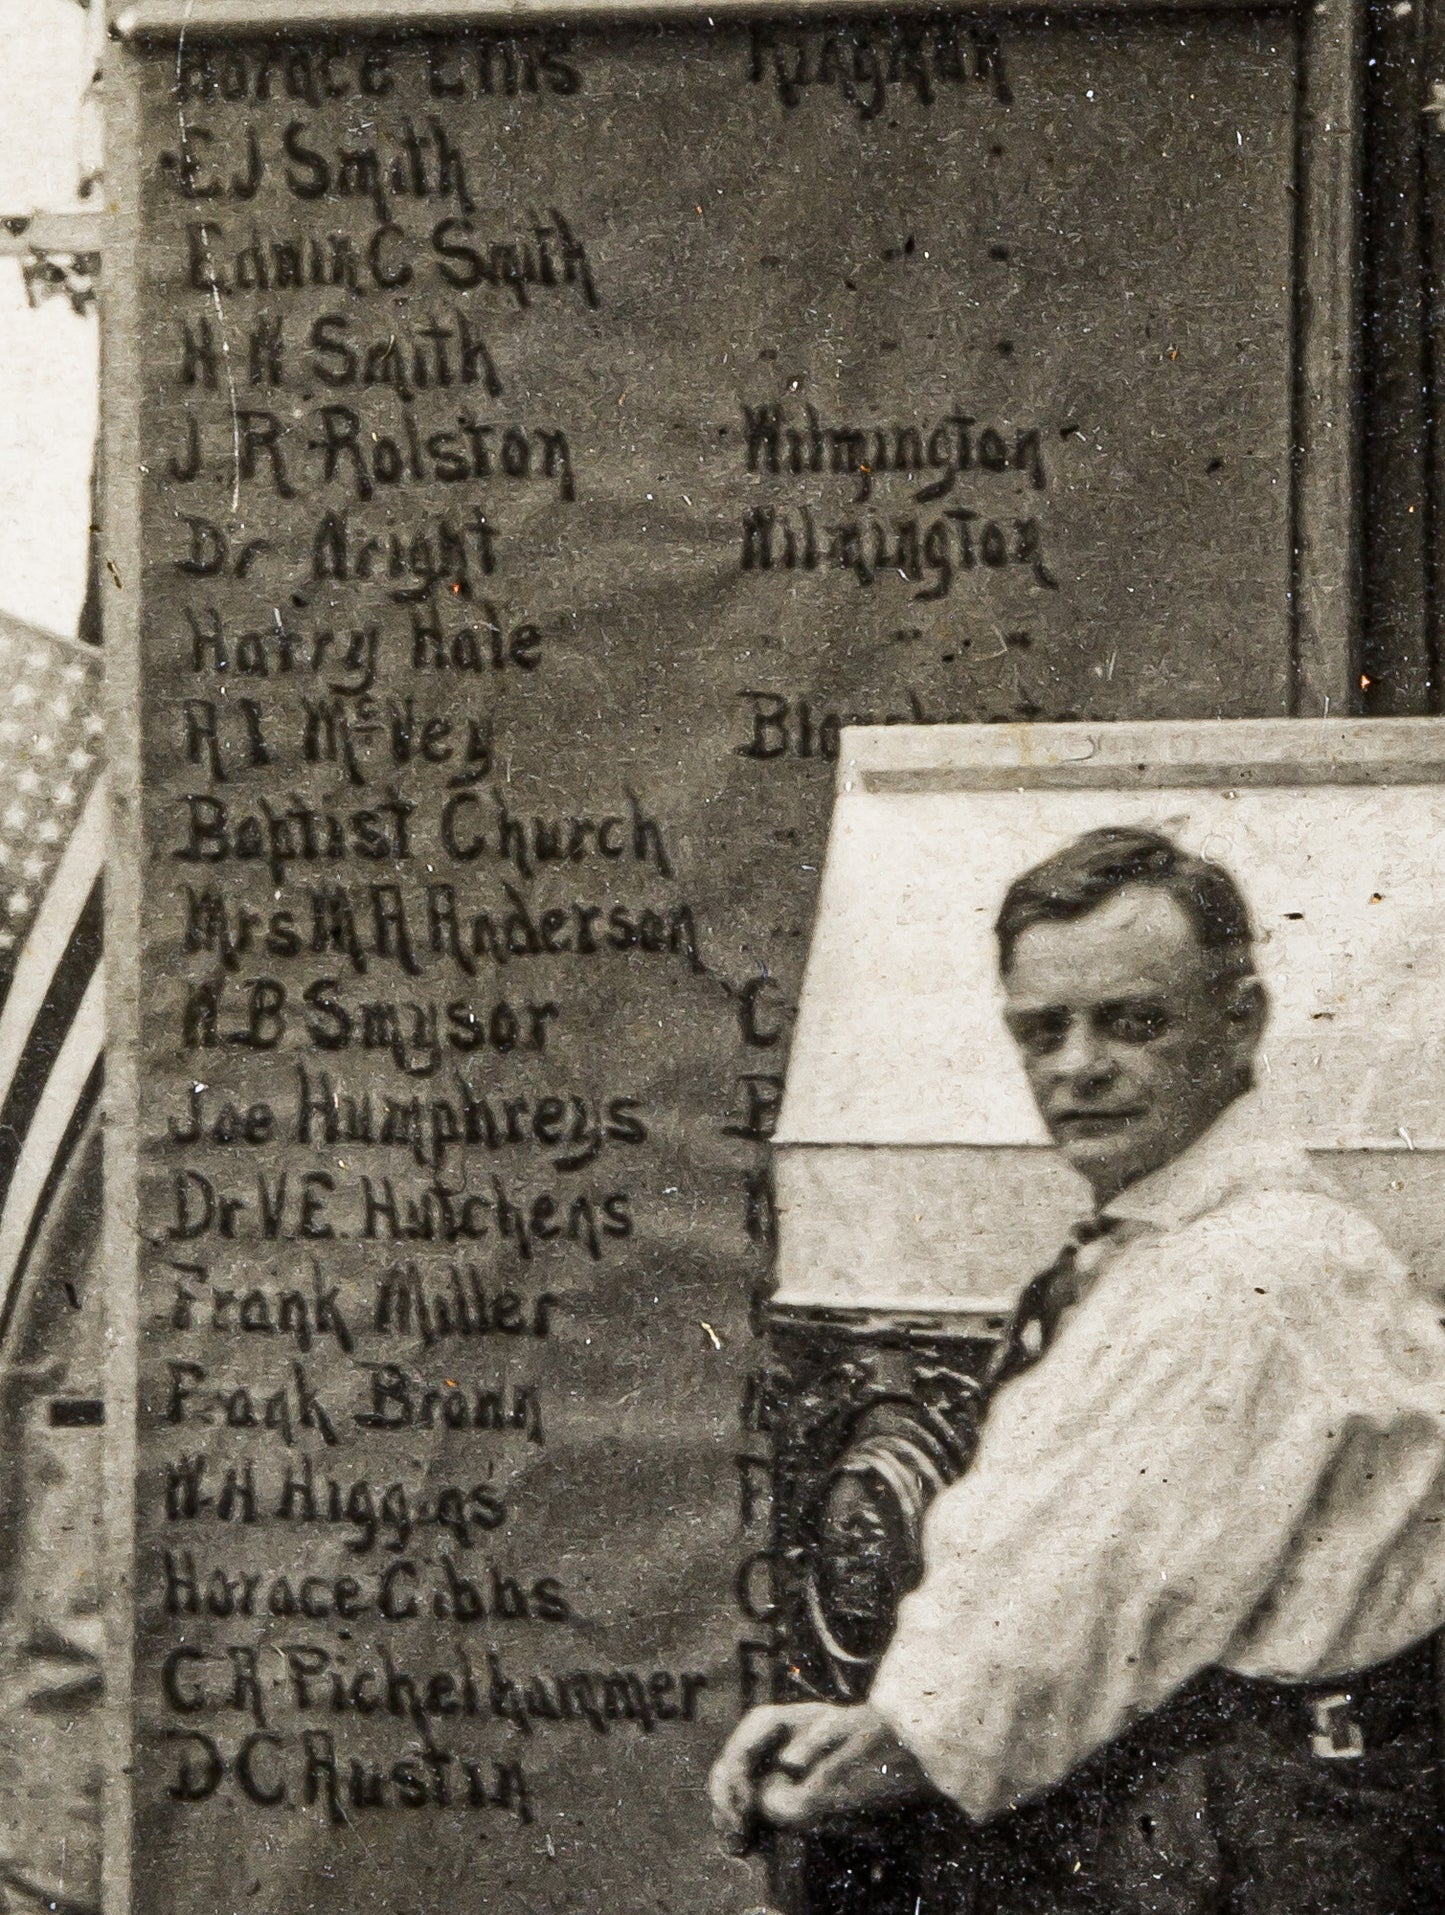 Horace Ellis Kingman
E J Smith " "
Edwin C Smith " "
H H Smith " "
J. R. Rolston Wilmington
Dr Wright Wilmington
Harry Hale " "
A I McVey Bla
Baptist Church "
Mrs M A Anderson "
A B Smysor C
Joe Humphreys B
Dr V. E. Hutchens
Frank Miller
Frank Brown
W. H Higgins F
Horace Gibbs C
C. A. Pickelhammer F
D. C. Austin